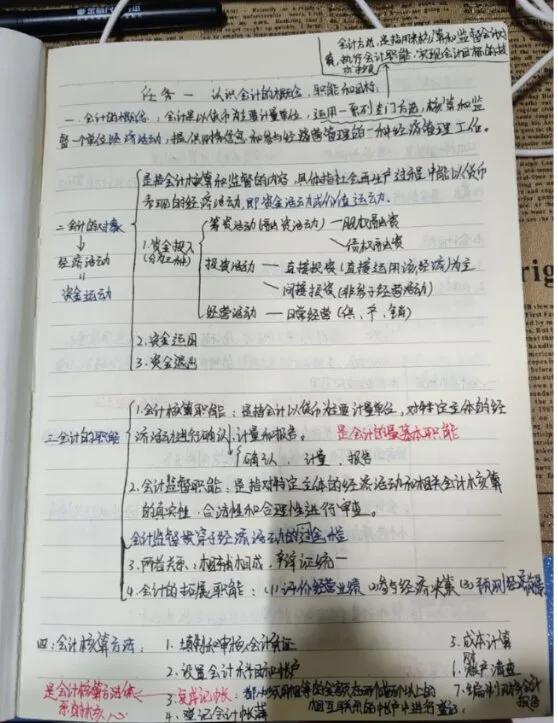 会计方法,是指用来核算和监督会计对
象,执行会计职能,实现会计目标的技
术手段
任务一 认识会计的概念、职能和目标。
一.会计的概念:会计是以货币为主要计量单位,运用一系列专门方法,核算和监
督一个单位经济活动,提供财务信息和参与经营管理的一种经济管理工作。
是指会计核算和监督的内容,具体指社会再生产过程中能以货币
表现的经济活动,即资金活动或价值运动。
二.会计的对象
经济活动
资金运动
1.资金投入
筹资活动(融资活动)— 股权融资
债权融资
投资活动 — 直接投资(直接运用该经济)为主
间接投资
经营活动 — 日常经营(供、产、销)
2.资金运用
3.资金退出
三.会计的职能
1.会计核算职能:是指会计以货币为主要计量单位,对特定主体的经
济活动进行确认、计量和报告。 是会计的最基本职能
确认、计量、报告
2.会计监督职能:是指对特定主体的经济活动和相关会计核算
的真实性、合法性和合理性进行审查。
会计监督贯穿于经济活动的过程
3.两者关系:相辅相成,辩证统一
4.会计的拓展职能:(1)评价经营业绩 (2)参与经济决策 (3)预测经济前景
四:会计核算方法: 1.填制和审核会计凭证 5.成本计算
2.设置会计科目和帐户 6.财产清查
是会计核算方法体
系的核心
3.复式记帐: 相互联系的帐户中进行登记 7.编制财务会计
报告
4.登记会计帐簿
rig